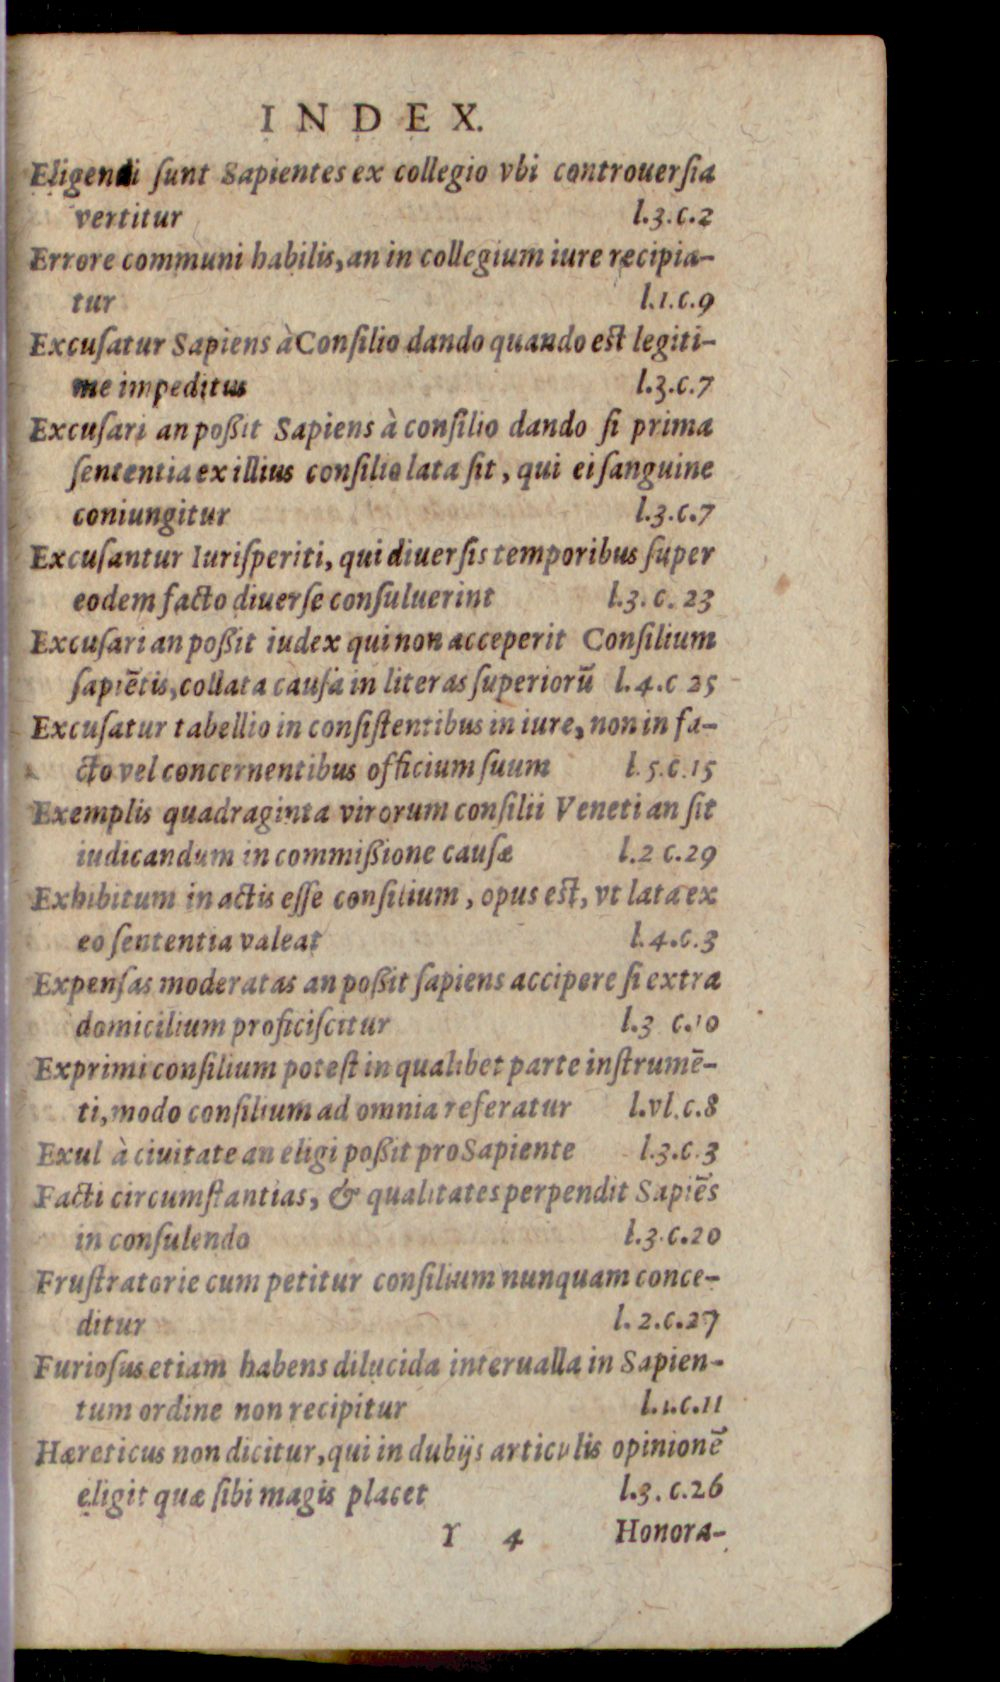 INDEX.
Eligendi ſunt Sapientes ex collegio vbi controuerſia
vertitur l.3.c.2
Errore communi habilis, an in collegium iure recipia-
tur l.1.c.9
Excuſatur Sapiens à Conſilio dando quando est legiti-
me impeditus l.3.c.7
Excuſari an poßit Sapiens à conſilio dando ſi prima
ſententia ex illius conſilio lata ſit, qui ei ſanguine
coniungitur l.3.c.7
Excuſantur Iuriſperiti, qui diuerſis temporibus ſuper
eodem facto diuerſe conſuluerint l.3.c.23
Excuſari an poßit iudex qui non acceperit Conſilium
ſapiētis, collata cauſa in literas ſuperiorū l.4.c 25
Excuſatur tabellio in conſiſtentibus in iure, non in fa-
cto vel concernentibus officium ſuum l.5.c.15
Exemplis quadraginta virorum conſilii Veneti an ſit
iudicandum in commißione cauſæ l.2 c.29
Exhibitum in actis eſſe conſilium, opus est, vt lata ex
eo ſententia valeat l.4.c.3
Expenſas moderatas an poßit ſapiens accipere ſi extra
domicilium proficiſcitur l.3 c.10
Exprimi conſilium poteſt in qualibet parte inſtrumē-
ti, modo conſilium ad omnia referatur l.vl.c.8
Exul à ciuitate an eligi poßit pro Sapiente l.3.c.3
Facti circumſtantias, & qualitates perpendit Sapiēs
in conſulendo l.3.c.20
Fruſtratorie cum petitur conſilium nunquam conce-
ditur l.2.c.27
Furioſus etiam habens dilucida interualla in Sapien-
tum ordine non recipitur l.1.c.11
Hæreticus non dicitur, qui in dubijs articulis opinionē
eligit quæ ſibi magis placet l.3.c.26
Y 4 Honora-